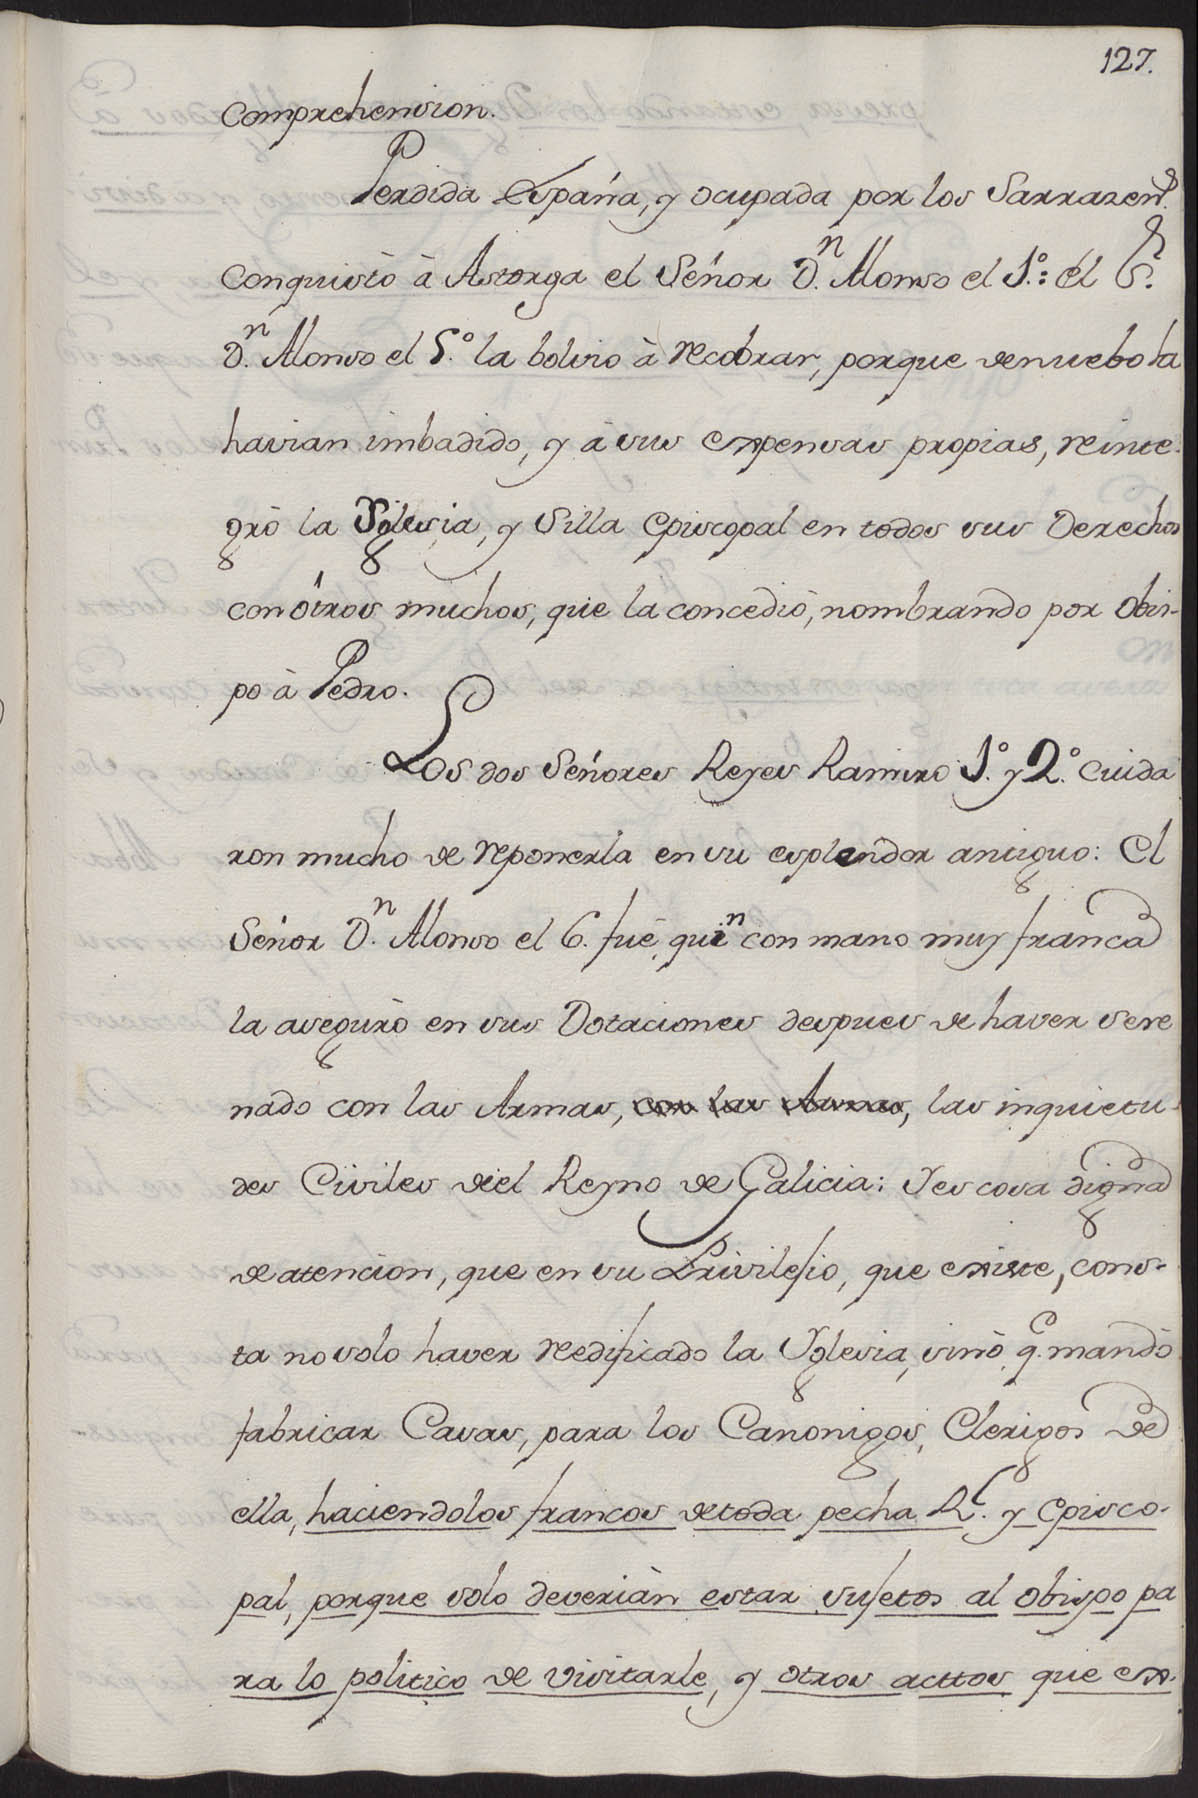 127.
comprehension.
Perdida España, y ocupada por los Sarrazen.s
conquistò à Astorga el Señor D.n Alonso el 1.º: el S.r
D.n Alonso el 5.º la bolvio à recobrar, porque denuebo la
havian imbadido, y à sus expensas propias, reinte-
grò la Yglesia, y Silla Episcopal en todos sus Derechos
con otros muchos, que la concediò, nombrando por Obis-
po à Pedro.
Los dos Señores Reyes Ramiro 1.º y 2.º cuida
ron mucho de reponerla en su esplendor antiguo: El
Señor D.n Alonso el 6. fué, quin con mano muy franca
la asegurò en sus Dotaciones despues de haver sere
nado con las Armas, con las Armas, las inquietu-
des Civiles del Reyno de Galicia: Yes cosa digna
de atencion, que en su Privilejio, que existe, cons-
ta no solo haver redificado la Yglesia, sinò, q.e mandò
fabricar Casas, para los Canonigos, Clerigos de
ella, haciendolos francos detoda pecha R.l y Episco-
pal, porque solo deveriàn estar sujetos al obispo pa
ra lo politico de visitarle, y otros acttos que ex-